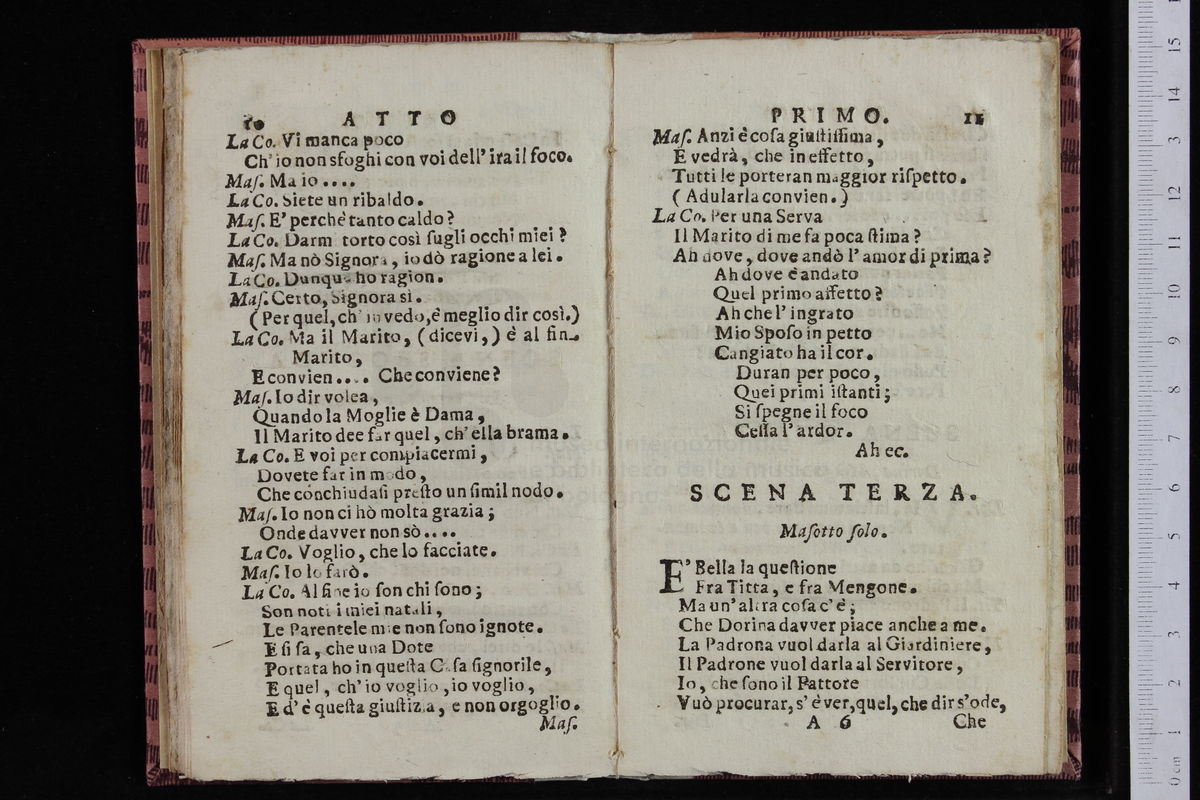 10 ATTO
La Co. Vi manca poco
Ch' io non sfoghi con voi dell' ira il foco.
Maſ. Ma io ....
La Co. Siete un ribaldo.
Maſ. E' perchè tanto caldo?
La Co. Darm torto così ſugli occhi miei?
Maſ. Ma nò Signora, io dò ragione a lei.
La Co. Dunque ho ragion.
Maſ. Certo, Signora sì.
(Per quel, ch' io vedo, è meglio dir così.)
La Co. Ma il Marito, (dicevi,) è al fin
Marito,
E convien.... Che conviene?
Maſ. Io dir volea,
Quando la Moglie è Dama,
Il Marito dee far quel, ch' ella brama.
La Co. E voi per compiacermi,
Dovete far in modo,
Che conchiudaſi preſto un ſimil nodo.
Maſ. Io non ci hò molta grazia;
Onde davver non sò....
La Co. Voglio, che lo facciate.
Maſ. Io lo farò.
La Co. Al fine io ſon chi ſono;
Son noti i miei natali,
Le Parentele mie non ſono ignote.
E ſi ſa, che una Dote
Portata ho in queſta Caſa ſignorile,
E quel, ch' io voglio, io voglio,
E d' è queſta giuſtizia, e non orgoglio.
Maſ.
PRIMO. 11
Maſ. Anzi è coſa giuſtiſſima,
E vedrà, che in effetto,
Tutti le porteran maggior riſpetto.
(Adularla convien.)
La Co. Per una Serva
Il Marito di me fa poca ſtima?
Ah dove, dove andò l' amor di prima?
Ah dove è andato
Quel primo affetto?
Ah che l' ingrato
Mio Spoſo in petto
Cangiato ha il cor.
Duran per poco,
Quei primi iſtanti;
Si ſpegne il foco
Ceſſa l' ardor.
Ah ec.
SCENA TERZA.
Maſotto ſolo.
E' Bella la queſtione
Fra Titta, e fra Mengone.
Ma un' altra coſa c' è;
Che Dorina davver piace anche a me.
La Padrona vuol darla al Giardiniere,
Il Padrone vuol darla al Servitore,
Io, che ſono il Fattore
Vuò procurar, s' è ver, quel, che dir s' ode,
A 6 Che
museo internazionale
e biblioteca della musica
bologna